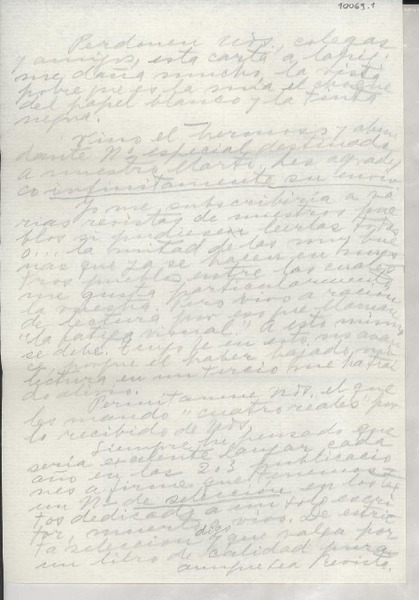 10069.1
Perdonen Uds, colegas
y amigos, esta carta a lápiz:
me daña mucho, la vista
pobre que es la mía el choque
del papel blanco y la tinta
negra.
Vino el hermoso y abun
dante Nº especial destinado
a nuestro Martí. Les agradez
co infinitamente su envío
Yo me subscribiría a va
rias revistas de nuestros pue
blos si pudiesen leerlas todas
o... la mitad de las muy bue
nas que ya se hacen en nues
tros pueblos, entre las cuales
me gusta particularmente
la Pero vivo a ración
de lectura por eso que llaman
"la fatiga visual". A esto mismo
se debe. Tengo fe en esto,
es, porque el haber bajado mi
lectura en un tercio me ha traí
do alivio.
Permítanme Uds. el que
les mande "cuatro reales" por
lo recibido de Uds,
Siempre he pensado que
sería excelente lanzar cada
año en las 2 o 3 publicacio
nes a firme que tenemos
un Nº de selección en los
tos dedicado a un solo escri
tor, muerto o vivo. De estric
ta selección digo y que valga por
un libro de calidad pura
aunque sea Revista.